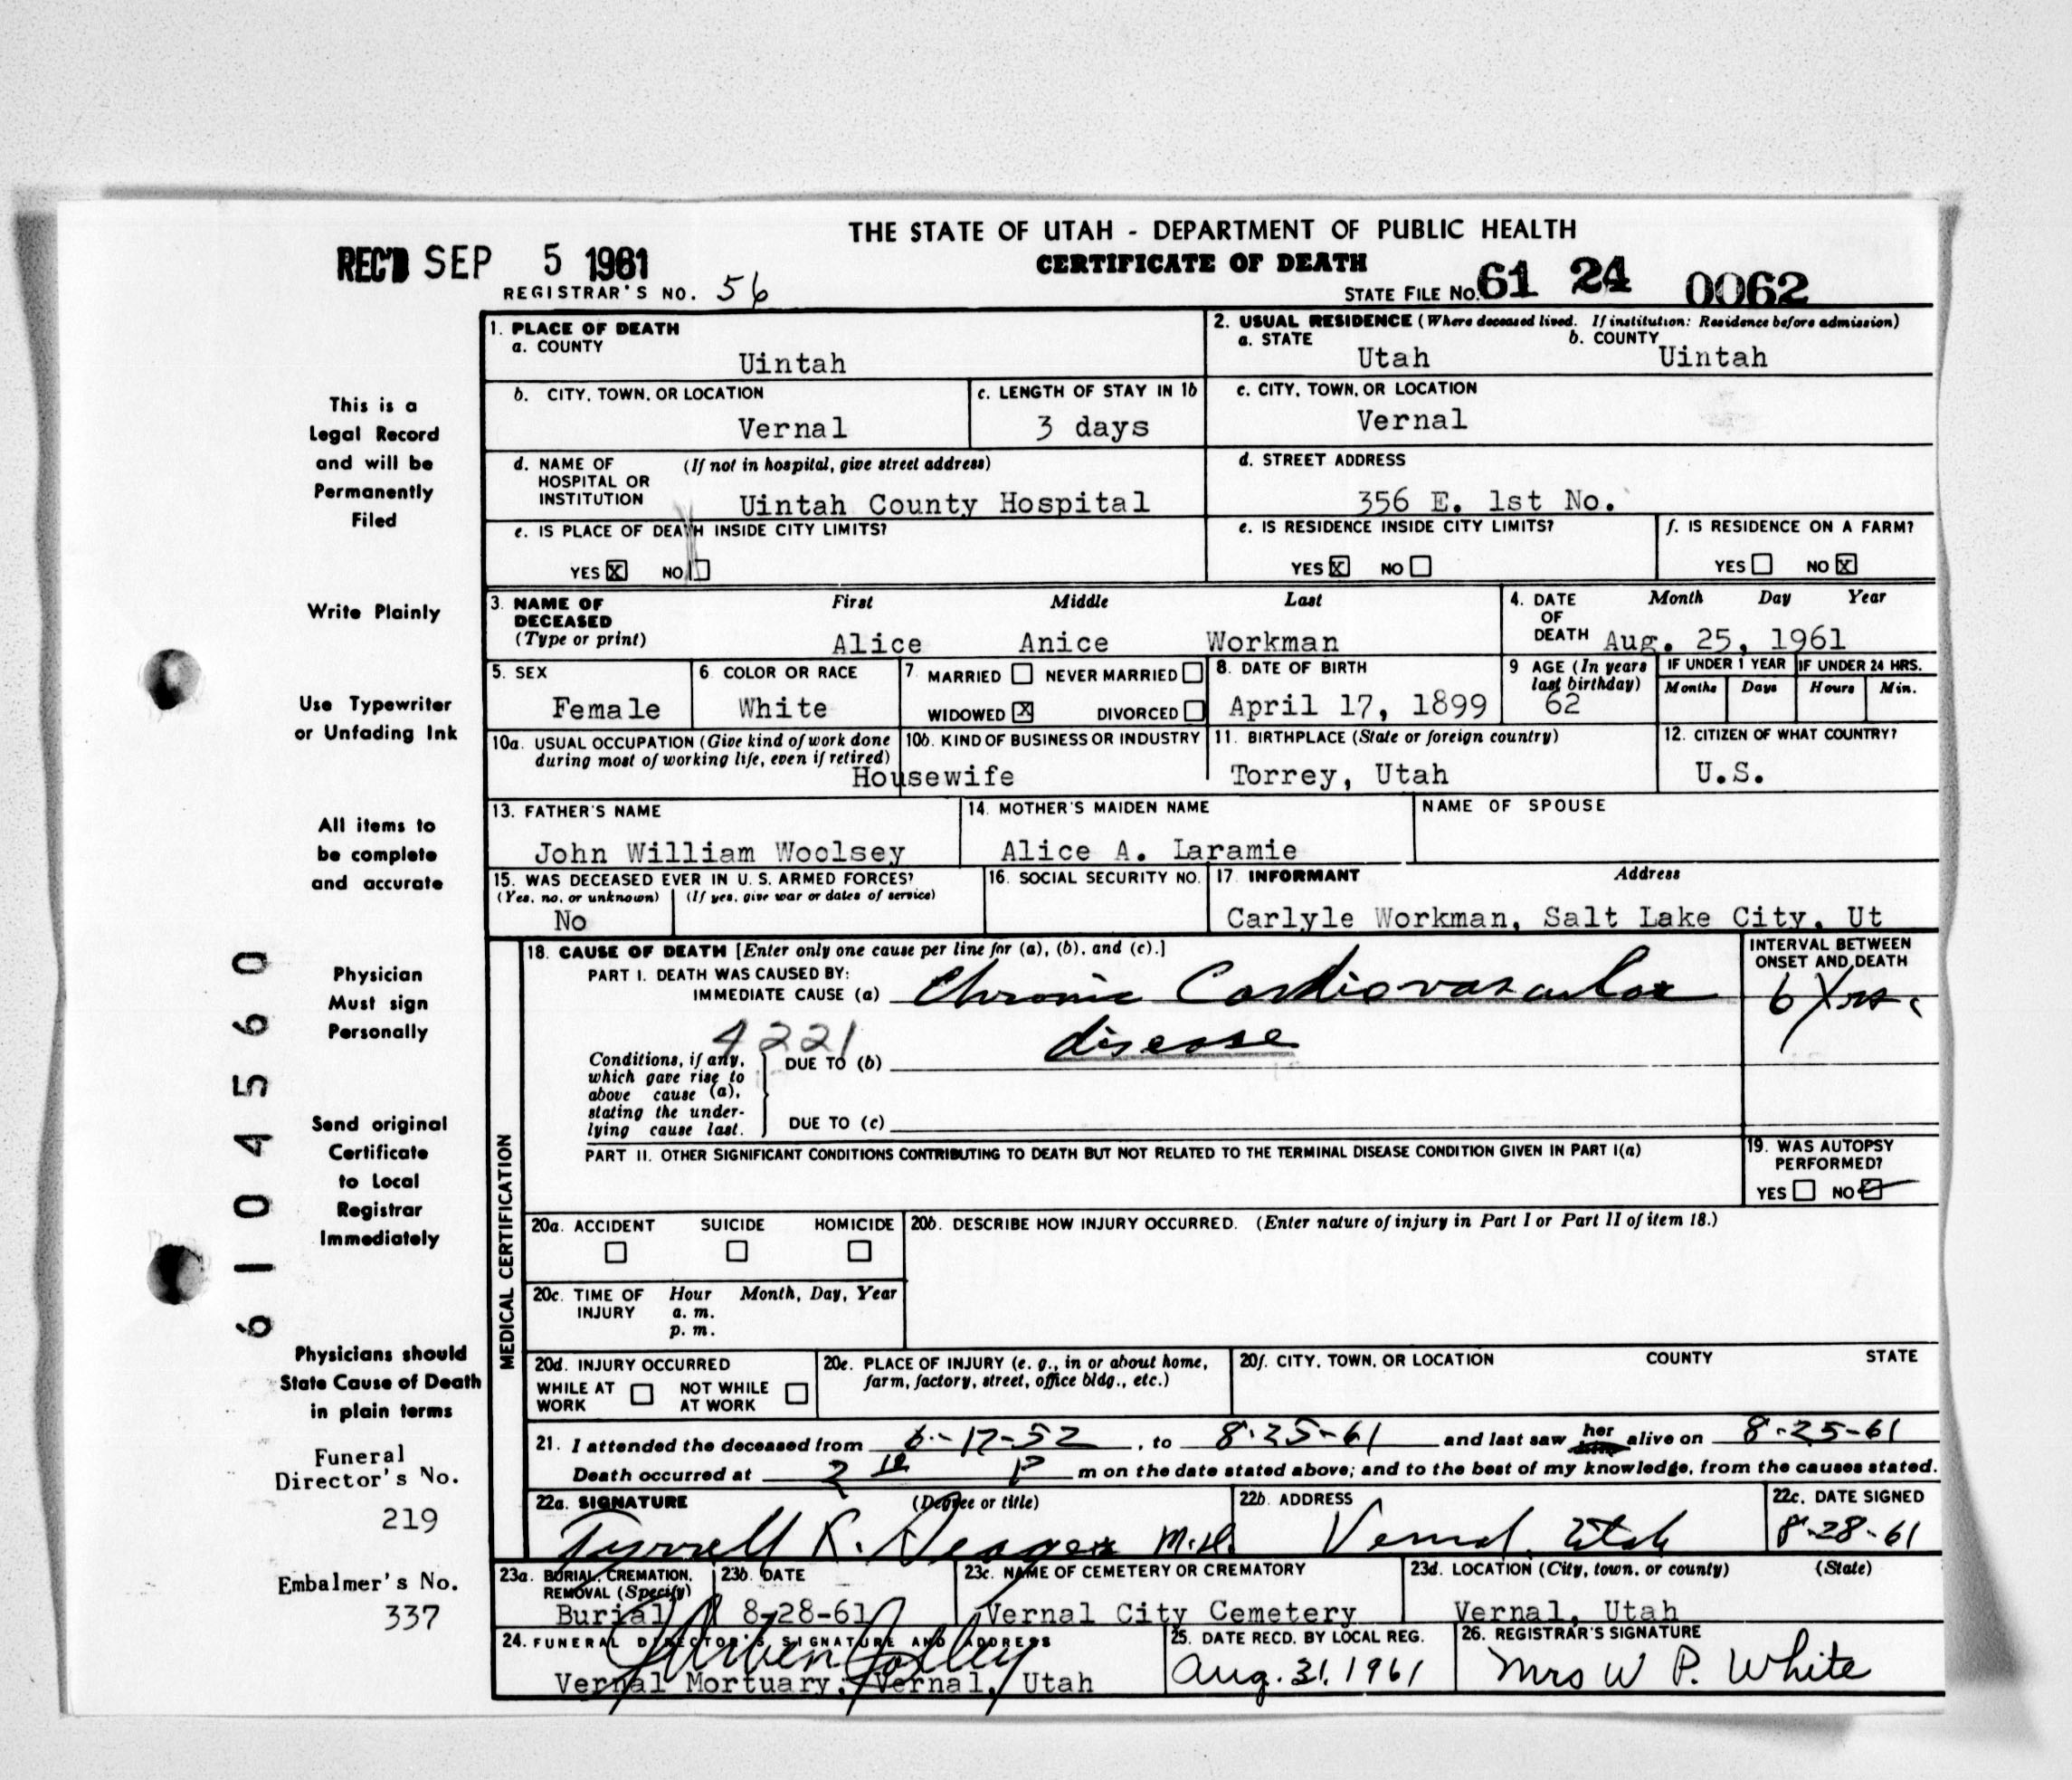 THE STATE OF UTAH - DEPARTMENT OF PUBLIC HEALTH
REC'D SEP 5 1961
CERTIFICATE OF DEATH
REGISTRAR'S NO. 56
STATE FILE NO. 61 24 0062
1. PLACE OF DEATH
a. COUNTY
Uintah
2. USUAL RESIDENCE (Where deceased lived. If institution: Residence before admission)
a. STATE
b. COUNTY
Utah Uintah
b. CITY, TOWN, OR LOCATION
Vernal
c. LENGTH OF STAY IN 1b
3 days
c. CITY, TOWN, OR LOCATION
Vernal
d. NAME OF (If not in hospital, give street address)
HOSPITAL OR
INSTITUTION Uintah County Hospital
d. STREET ADDRESS
356 E. 1st No.
e. IS PLACE OF DEATH INSIDE CITY LIMITS?
YES X NO
e. IS RESIDENCE INSIDE CITY LIMITS?
YES X NO
f. IS RESIDENCE ON A FARM?
YES NO X
3. NAME OF DECEASED (Type or print)
First Middle Last
Alice Anice Workman
4. DATE OF DEATH
Month Day Year
Aug. 25, 1961
5. SEX
Female
6. COLOR OR RACE
White
7. MARRIED NEVER MARRIED
WIDOWED X DIVORCED
8. DATE OF BIRTH
April 17, 1899
9 AGE (In years
last birthday)
62
IF UNDER 1 YEAR
Months Days
IF UNDER 24 HRS.
Hours Min.
10a. USUAL OCCUPATION (Give kind of work done
during most of working life, even if retired)
10b. KIND OF BUSINESS OR INDUSTRY
Housewife
11. BIRTHPLACE (State or foreign country)
Torrey, Utah
12. CITIZEN OF WHAT COUNTRY?
U.S.
13. FATHER'S NAME
John William Woolsey
14. MOTHER'S MAIDEN NAME
Alice A. Laramie
NAME OF SPOUSE
15. WAS DECEASED EVER IN U. S. ARMED FORCES?
(Yes, no, or unknown) (If yes, give war or dates of service)
No
16. SOCIAL SECURITY NO.
17. INFORMANT Address
Carlyle Workman, Salt Lake City, Ut
MEDICAL CERTIFICATION
18. CAUSE OF DEATH [Enter only one cause per line for (a), (b), and (c).]
PART I. DEATH WAS CAUSED BY:
IMMEDIATE CAUSE (a) Chronic Cardiovascular
disease
4221
INTERVAL BETWEEN
ONSET AND DEATH
6 Yrs.
Conditions, if any,
which gave rise to
above cause (a),
stating the under-
lying cause last.
DUE TO (b)
DUE TO (c)
PART II. OTHER SIGNIFICANT CONDITIONS CONTRIBUTING TO DEATH BUT NOT RELATED TO THE TERMINAL DISEASE CONDITION GIVEN IN PART I(a)
19. WAS AUTOPSY
PERFORMED?
YES NO
20a. ACCIDENT SUICIDE HOMICIDE
20b. DESCRIBE HOW INJURY OCCURRED. (Enter nature of injury in Part I or Part II of item 18.)
20c. TIME OF INJURY
Hour Month, Day, Year
a. m.
p. m.
20d. INJURY OCCURRED
WHILE AT WORK
NOT WHILE AT WORK
20e. PLACE OF INJURY (e. g., in or about home,
farm, factory, street, office bldg., etc.)
20f. CITY, TOWN, OR LOCATION COUNTY STATE
21. I attended the deceased from 6-17-52, to 8-25-61 and last saw her alive on 8-25-61
Death occurred at 2 10 P m on the date stated above; and to the best of my knowledge, from the causes stated.
22a. SIGNATURE (Degree or title)
Tyrrell R. Seager M.D.
22b. ADDRESS
Vernal, Utah
22c. DATE SIGNED
8-28-61
23a. BURIAL, CREMATION,
REMOVAL (Specify)
Burial
23b. DATE
8-28-61
23c. NAME OF CEMETERY OR CREMATORY
Vernal City Cemetery
23d. LOCATION (City, town, or county) (State)
Vernal, Utah
24. FUNERAL DIRECTOR'S SIGNATURE AND ADDRESS
Vernal Mortuary, Vernal, Utah
25. DATE RECD. BY LOCAL REG.
Aug. 31, 1961
26. REGISTRAR'S SIGNATURE
Mrs W P. White
This is a
Legal Record
and will be
Permanently
Filed
Write Plainly
Use Typewriter
or Unfading Ink
All items to
be complete
and accurate
Physician
Must sign
Personally
Send original
Certificate
to Local
Registrar
Immediately
Physicians should
State Cause of Death
in plain terms
Funeral
Director's No.
219
Embalmer's No.
337
6104560